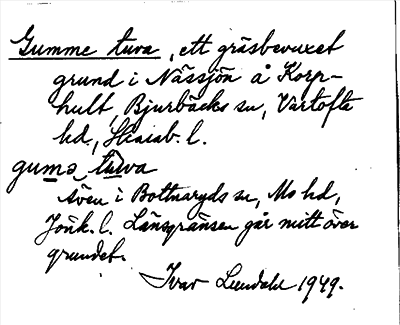 Gumme tuva, ett gräsbevuxet
grund i Nässjön å Korp-
hult, Bjurbäcks sn, Vartofta
hd., Skarab. l.
gumə tuva
Även i Bottnaryds sn, Mo hd,
Jönk. l. Länsgränsen går mitt över
grundet.
Ivar Lundahl 1949.